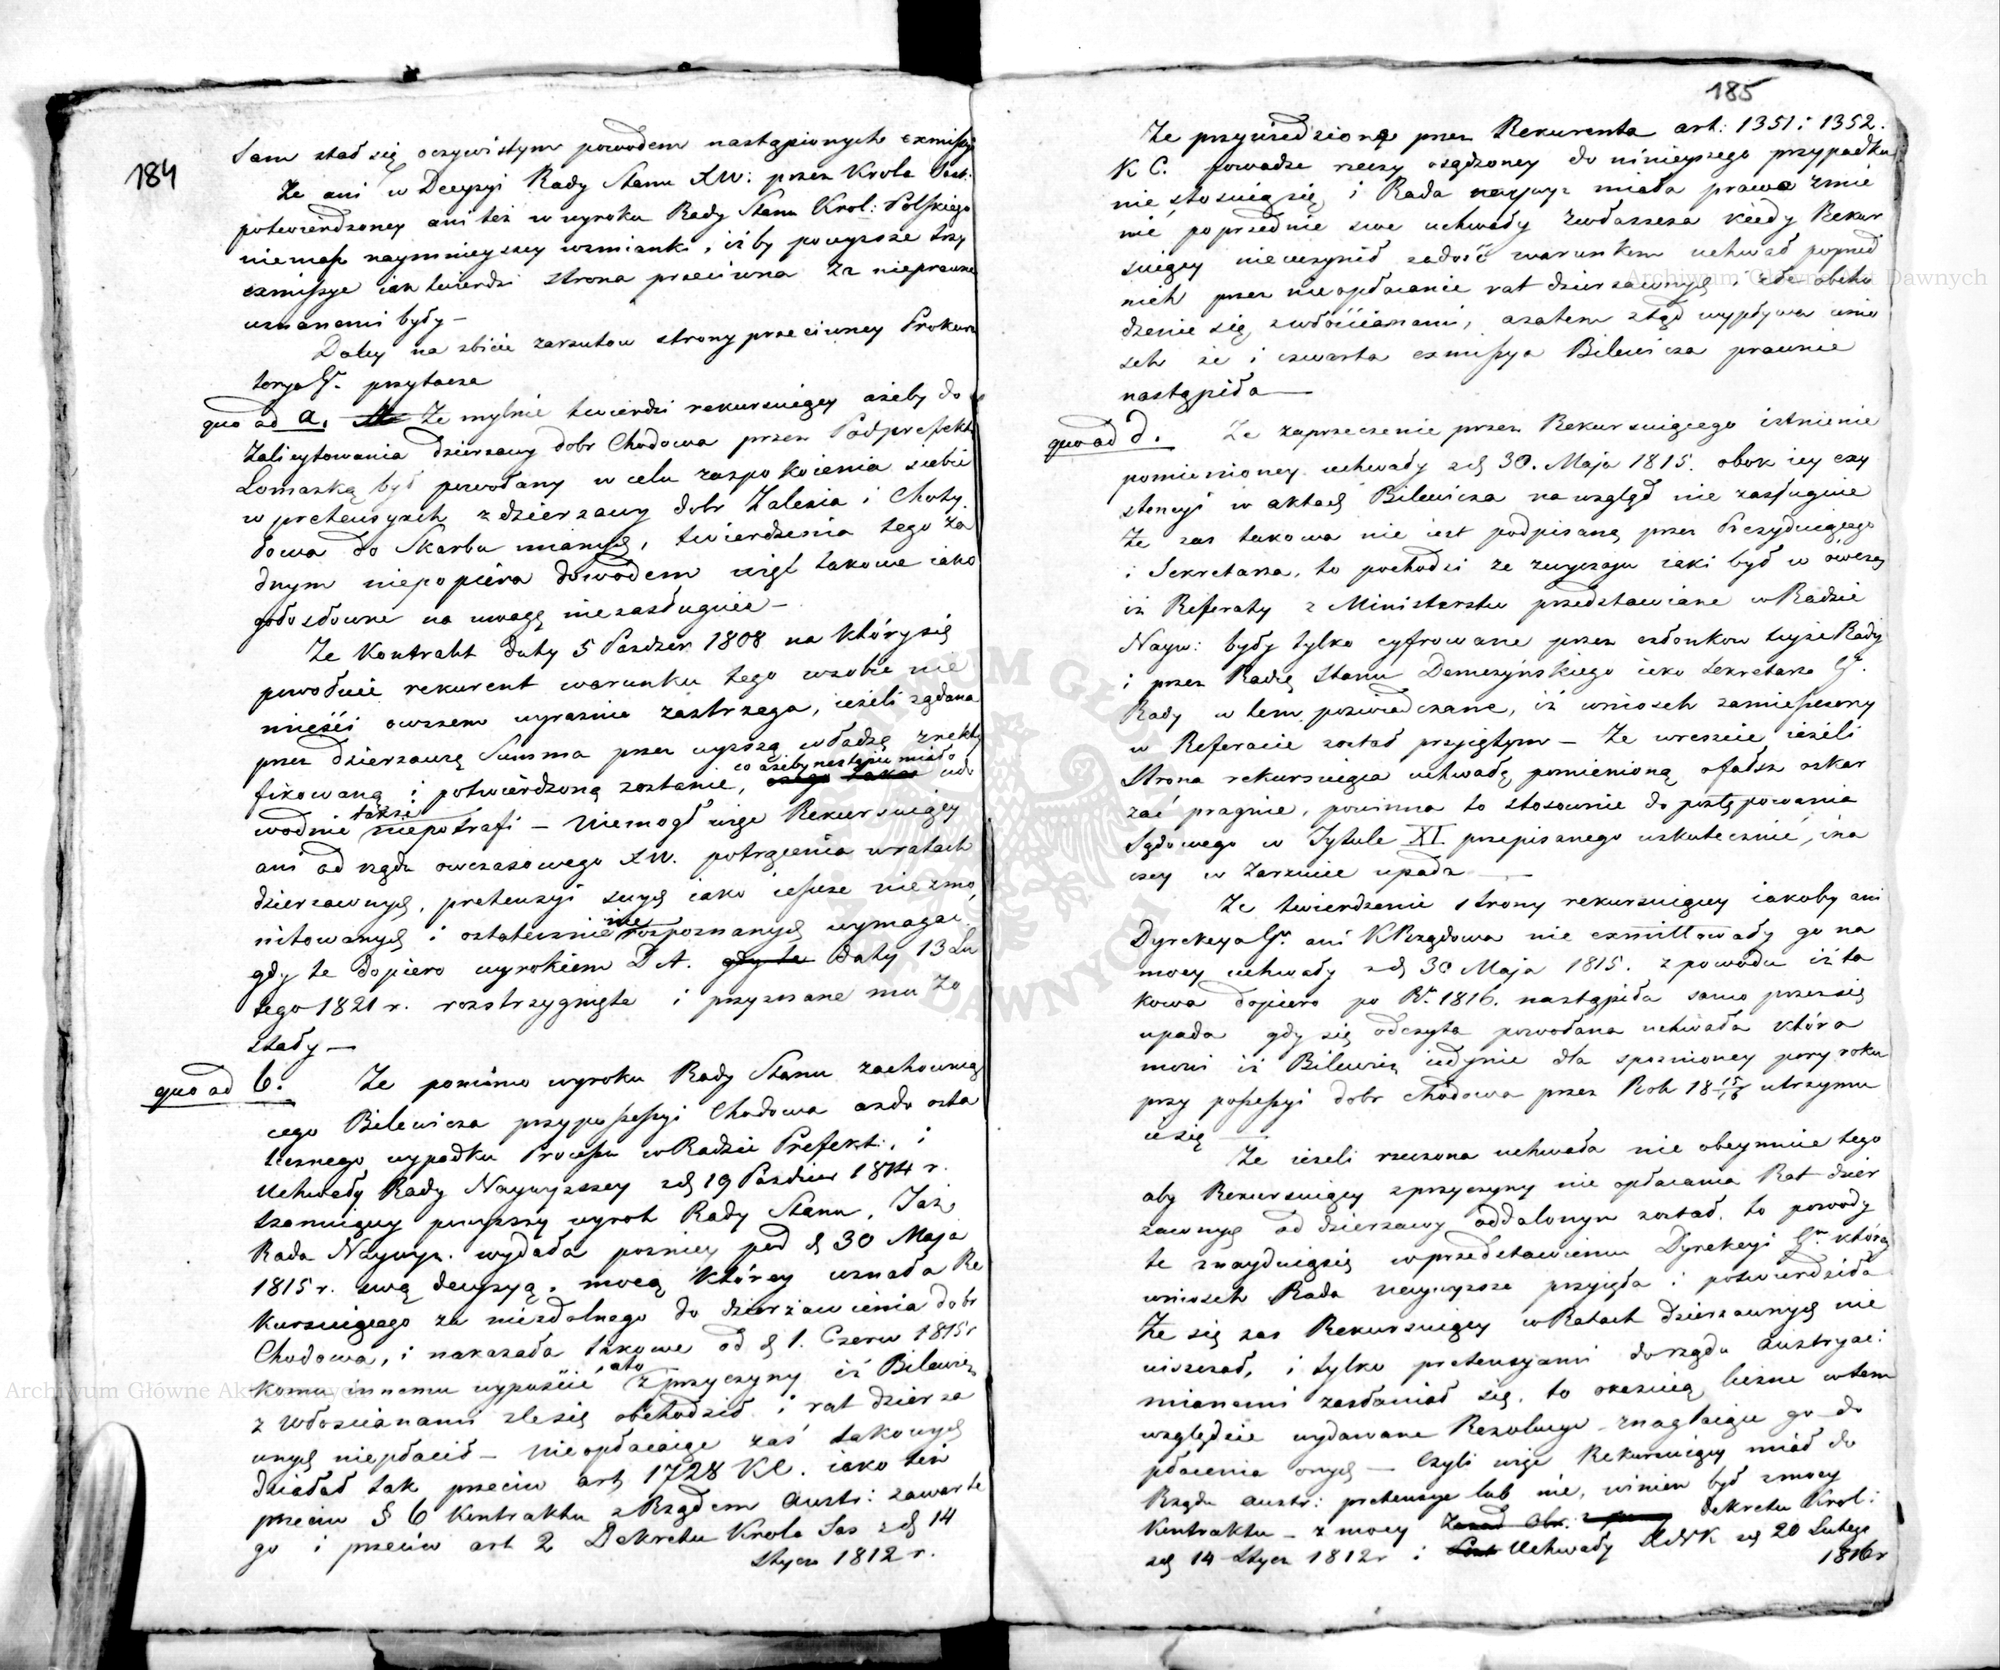 184
Sam stał się oczywistym powodem nastąpionych exmissyi
Że ani w Decyzyi Rady Stanu XW: przez Krola Sask:
potwierdzoney ani też w wyroku Rady Stanu Krol: Polskiego
niemasz naymnieyszey wzmianki, iżby powyższe trzy
exmissye iak twierdzi strona przeciwna za nieprawne
uznanemi były —
Daley na zbicie zarzutow strony przeciwney Prokura
torya Gr. przytacza
quo ad a. Że mylnie twierdzi rekursuiący ażeby do
Zalicytowania dzierzawy dobr Chodowa przez Podprefekta
Łomaską był powołany w celu zaspokoienia siebie
w pretensyach z dzierzawy dobr Zalesia i Choty
dowa do Skarbu mianych, twierdzenia tego ża
dnym niepopiéra dowodem więc takowe iako
gołosłowne na uwagę niezasługuie —
Że Kontrakt daty 5 Pazdzier 1808 na który się
powołuie rekurent warunku tego w sobie nie
mieści owszem wyraźnie zastrzega, ieżeli żądana
przez dzierzawcę Summa przez wyższą władzę zrekty
fikowaną i potwierdzoną zostanie, co ażeby nastąpić miało udo
wodnić także niepotrafi — Niemogł więc Rekursuiący
ani od rządu owczasowego XW. potrącenia w ratach
dzierzawnych, pretensyi swych iako ieszcze nie zmo
nitowanych i ostatecznie nie rozpoznanych wymagać,
gdy te dopiero wyrokiem D A. gdy te daty 13 Lu
tego 1821 r. rozstrzygnięte i przyznane mu zo
stały —
quo ad b. Że pomimo wyroku Rady Stanu zachowuią
cego Bilewicza przy possessyi Chodowa aż do osta
tecznego wypadku Processu w Radzie Prefekt:, i
Uchwały Rady Naywyższey z d. 19 Pazdzier 1814 r.
tzamuiący powyższy wyrok Rady Stanu, Taż
Rada Naywyż. wydała pozniey pod d. 30 Maja
1815 r. swą decyzyą, mocą którey uznała Re
kursuiącego za niezdolnego do dzierżawienia dobr
Chodowa, i nakazała takowe od d. 1. Czerw 1815 r
komu innemu wypuścić, a to z przyczyny iż Bilewicz
z Włoscianami zle się obchodził i rat dzierza
wnych niepłacił — Nieopłacaiąc zaś takowych
działał tak przeciw art. 1728 KC. iako też
przeciw § 6 Kontraktu z Rządem Austr: zawarte
go i przeciw art 2 Dekretu Krola Sas z d. 14
Stycz 1812 r.
185
Że przywiedzione przez Rekurenta art: 1351 i 1352.
K C. powadze rzeczy osądzoney do ninieyszego przypadku
nie stosuią się, i Rada naywyż miała prawo zmie
nić poprzednie swe uchwały zwłaszcza kiedy Rekur
suiący nieuczynił zadość warunkom uchwał poprzed
nich przez nieopłacanie rat dzierzawnych i złe obcho
dzenie się z włościanami, a zatem ztąd wypływa wnio
sek że i czwarta exmissya Bilewicza prawnie
nastąpiła —
quo ad d. Że zaprzeczenie przez Rekursuiącego istnienie
pomienioney uchwały z d. 30. Maja 1815. obok iey exy
stencyi w aktach Bilewicza na wzgląd nie zasługuie
Że zas takowa nie iest podpisaną przez Prezyduiącego
i Sekretarza, to pochodzi ze zwyczaju iaki był w ówczas
iż Referaty z Ministerstw przedstawiane w Radzie
Nayw: były tylko cyfrowane przez członkow teyże Rady
i przez Radcę Stanu Demezyńskiego iako Sekretarza G.
Rady w tem poswiadczane, iż wniosek zamieszczony
w Referacie został przyiętym — Że wreszcie ieżeli
Strona rekursuiąca uchwałę pomienioną o fałsz oskar
żać pragnie, powinna to stosownie do postępowania
Sądowego w Tytule XI przepisanego uskutecznić, ina
czey w zarzucie upada —
Że twierdzenie strony rekursuiącey iakoby ani
Dyrekcya Gr. ani K Rządowa nie exmittowały go na
mocy uchwały z d. 30 Maja 1815. z powodu iż ta
kowa dopiero po Rr. 1816. nastąpiła samo przez się
upada gdy się odczyta powołana uchwała która
mowi iż Bilewicz iedynie dla spoznioney pory roku
przy possessyi dobr Chodowa przez Rok 18 15/16 utrzymu
ie się —
Że ieżeli rzeczona uchwała nie obeymuie tego
aby Rekursuiący z przyczyny nie opłacania Rat dzier
zawnych od dzierzawy oddalonym został, to powody
te znayduią się w przedstawieniu Dyrekcyi Gr. którą
wniosek Rada naywyższa przyięła i potwierdziła
Że się zas Rekursuiący w Ratach dzierzawnych nie
uiszczał, i tylko pretensyami do rządu Austryac:
mianemi zasłaniał się, to okazuią liczne w tem
względzie wydawane Rezolucye znaglaiące go do
płacenia onych — Czyli więc Rekursuiący miał do
Rządu Austr: pretensye lub nie, winien był z mocy
Kontraktu — z mocy dekretu Krol:
z d. 14 Stycz 1812 r i Uchwały z d. 20 Lutego
1816 r
Archiwum Główne Akt Dawnych